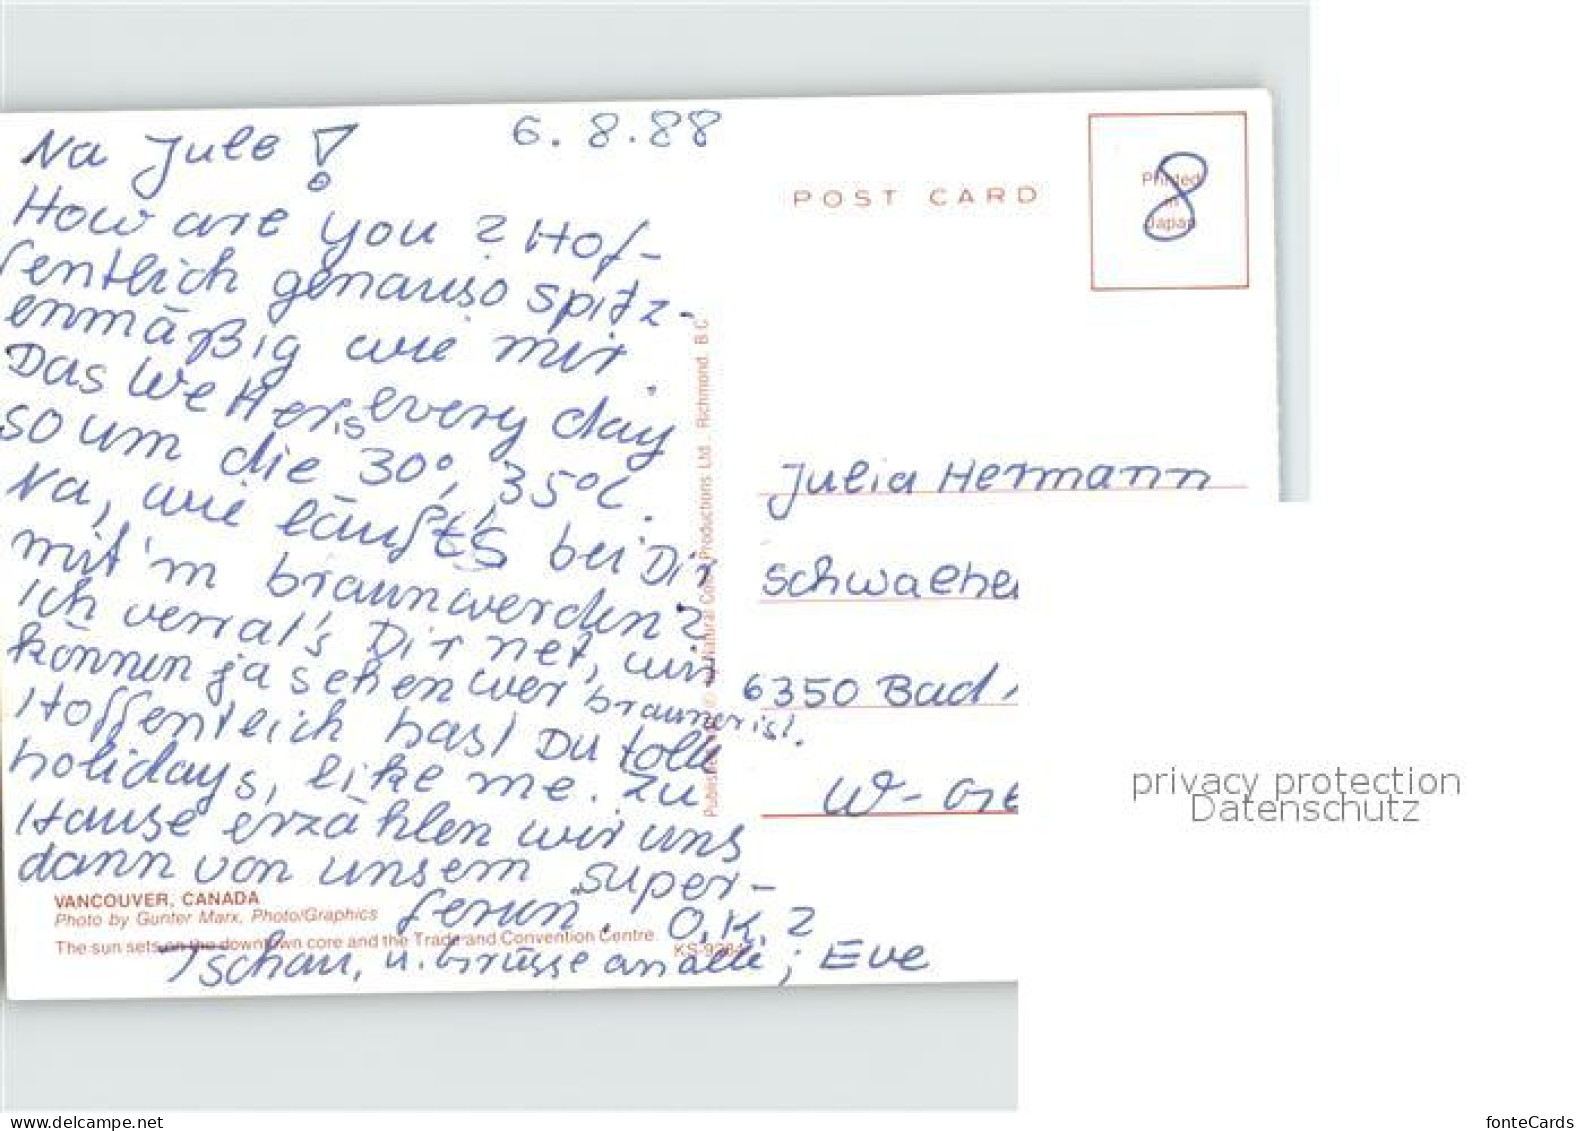 6.8.88
Na Jule!
How are you? Hof-
fentlich genauso spitz-
enmäßig wie mir.
Das Wetter is every day
so um die 30°, 35°C.
Na, wie läuft's bei Dir
mit'm braunwerden?
Ich verrat's Dir net, wir
können ja sehen wer brauner ist.
Hoffentlich hast Du tolle
holidays, like me. Zu
Hause erzählen wir uns
dann von unsern super-
ferien. O.K.?
Tschau, u. grüsse an alle; Eve
VANCOUVER, CANADA
Photo by Gunter Marx, Photo/Graphics
The sun sets on the downtown core and the Trade and Convention Centre.
Natural Color Productions Ltd., Richmond, B.C.
POST CARD
Printed
in
Japan
8
Julia Hermann
6350 Bad
W-
privacy protection
Datenschutz
www.delcampe.net
fonteCards